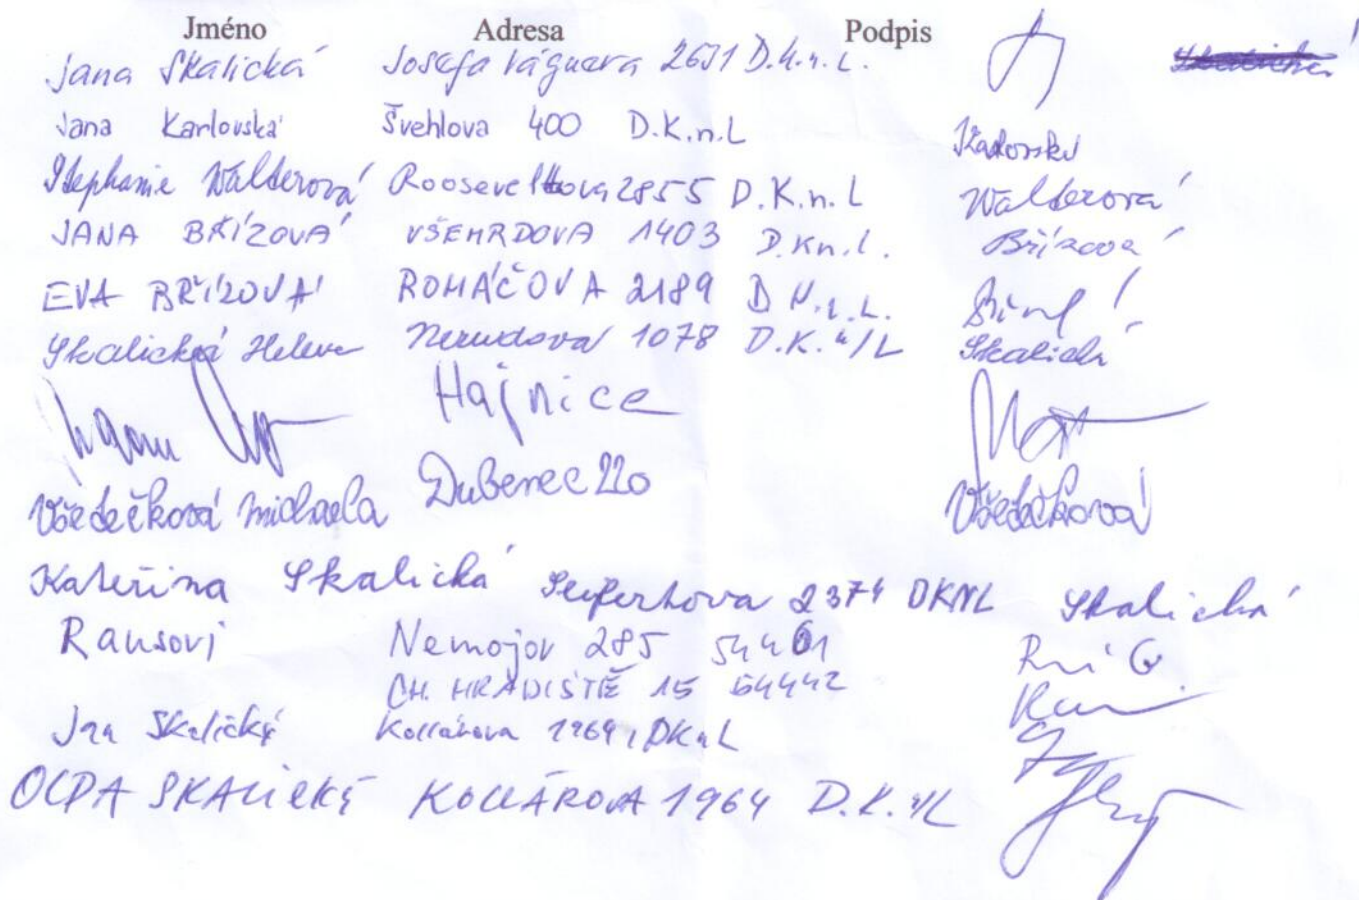 Jméno Adresa Podpis
Jana Skalická Josefa Vágnera 2631 D.K.n.L.
Jana Karlovská Švehlova 400 D.K.n.L
Stephanie Walderová Rooseveltova 2855 D.K.n.L Walderová
JANA BŘÍZOVÁ VŠEHRDOVA 1403 D.Kn.l. Břízová
EVA BŘÍZOVÁ ROHÁČOVA 2189 D K.n.L.
Skalická Helena Nerudova 1078 D.K.n/L Skalická
Hajnice
Všedečková Michaela Dubenec 220 Všedečková
Kateřina Skalická Seifertova 2374 DKNL Skalická
Rausovi Nemojov 285 54461
CH. HRADIŠTĚ 15 54442
Jan Skalický Kollárova 1964, DKnL
OLDA SKALICKÝ KOLLÁROVA 1964 D.K.n/L